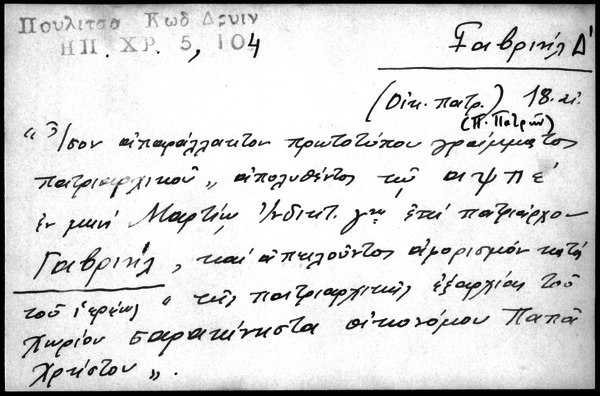 Πουλιτσα Κωδ Δρυιν
ΗΠ. ΧΡ. 5, 104
Γαβριήλ Δ'
(Οἰκ. πατρ.) 18. αἰ.
(Π. Πατρῶν)
"Ἴσον ἀπαράλλακτον πρωτοτύπου γράμματος
πατριαρχικοῦ", ἀπολυθέντος τῷ αψπε'
ἐν μηνὶ Μαρτίῳ Ἰνδικτ. γης ἐπὶ πατριάρχου
Γαβριήλ, καὶ ἀπειλοῦντος ἀφορισμὸν κατὰ
τοῦ ἱερέως "τῆς πατριαρχικῆς ἐξαρχίας τοῦ
χωρίου Σαρακήνηστα οἰκονόμου Παπᾶ
Χρήστου".